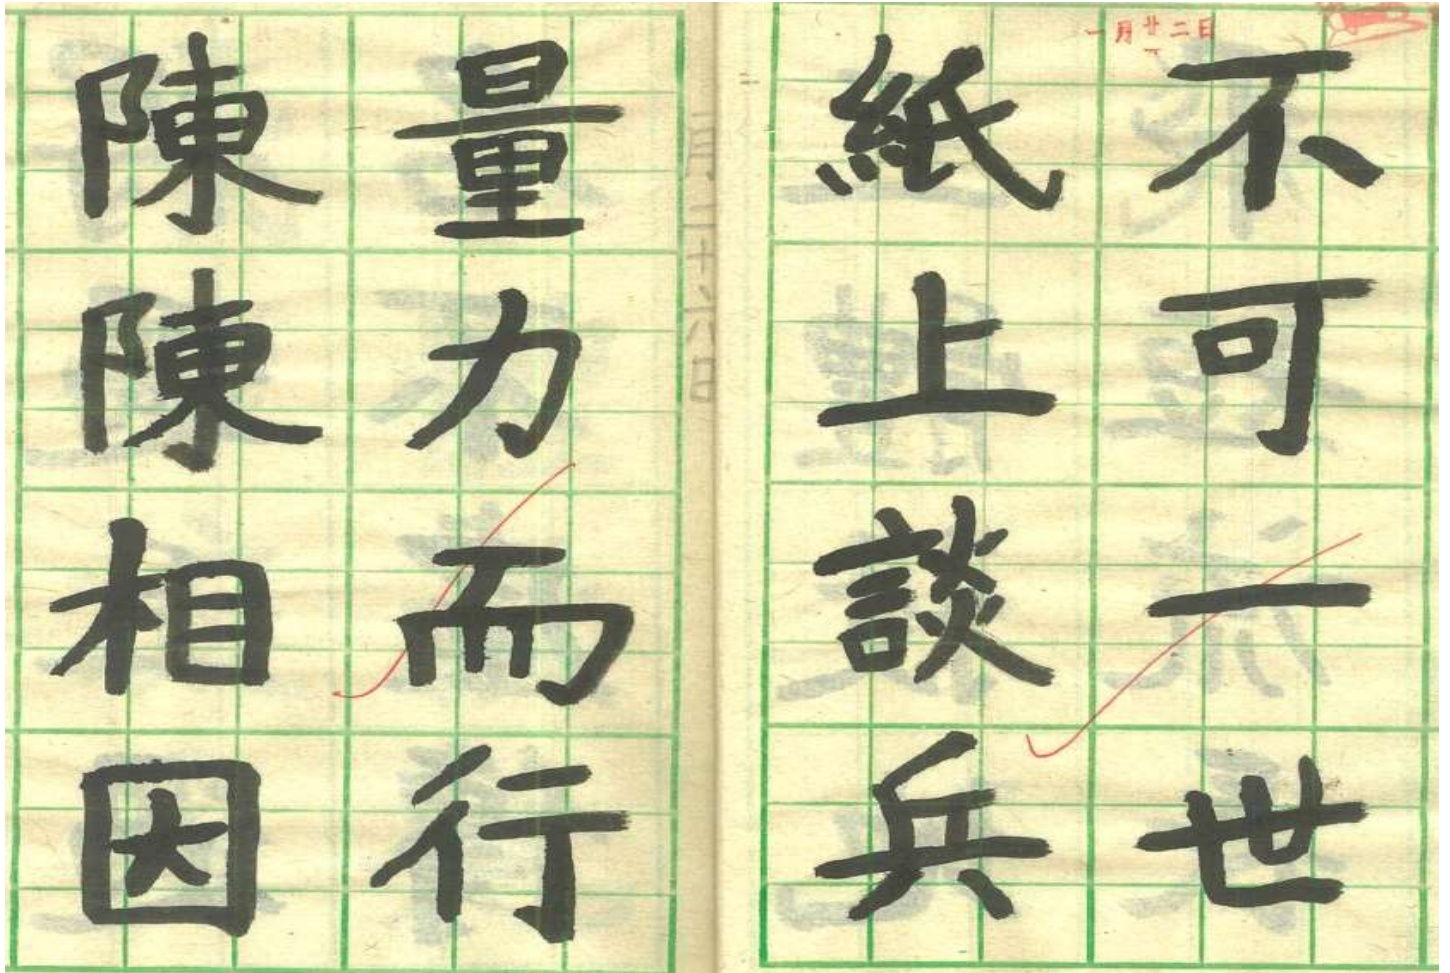 一月廿二日
不可一世
紙上談兵
量力而行
陳陳相因